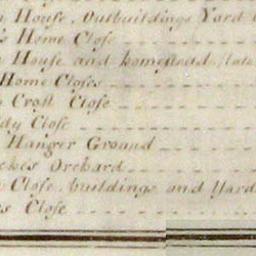 House, Outbuildings Yard
s Home Close
House and homestead
Home Closes
Croft Close
dy Close
Hanger Ground
ches Orchard
Close, buildings and Yard
s Close